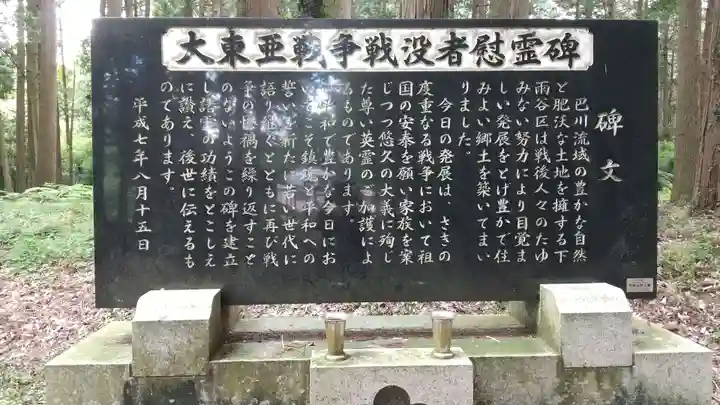 大東亜戦争戦没者慰霊碑
碑文
巴川流域の豊かな自然
と肥沃な土地を擁する下
雨谷区は戦後人々のたゆ
みない努力により目覚ま
しい発展をとげ豊かで住
みよい郷土を築いてまい
りました。
今日の発展は、さきの
度重なる戦争において祖
国の安泰を願い家族を案
じつつ悠久の大義に殉じ
た尊い英霊のご加護によ
るものであります。
平和で豊かな今日にお
いてこそ鎮魂と平和への
誓いを新たに若い世代に
語り継ぐとともに再び戦
争の惨禍を繰り返すこと
のないようこの碑を建立
し諸霊の功績をとこしえ
に讃え、後世に伝えるも
のであります。
平成七年八月十五日